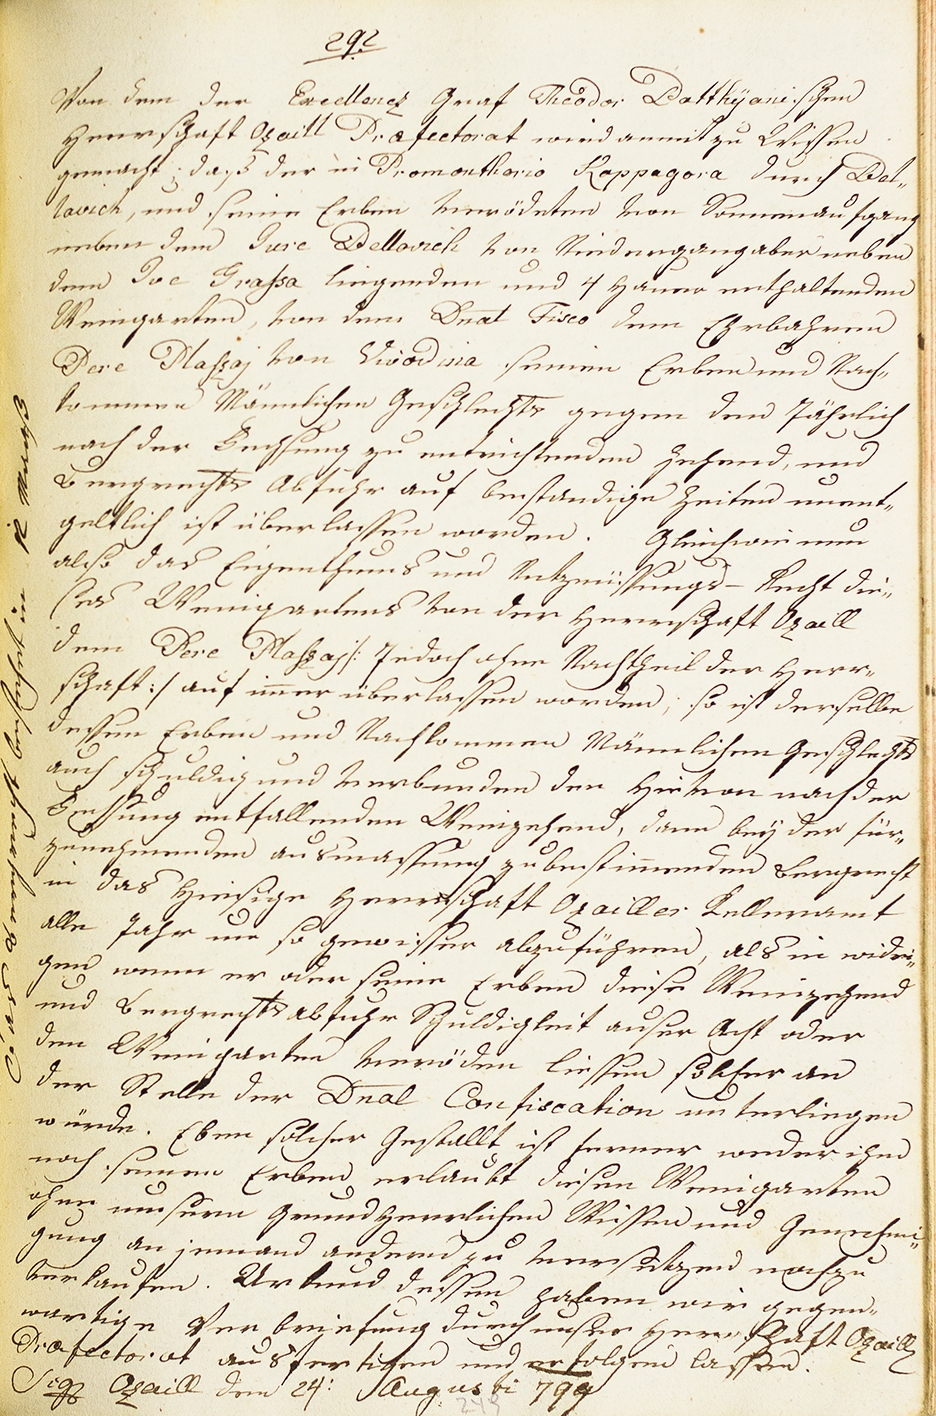 292
Von dem der Excellenz Graf Theodor Batthÿani.schen
Herrschaft Ozaill Præfectorat wird anmit zu Wissen
gemacht; daß der in Promonthorio Kappagora durch Bel„
lavich, und seine Erben verödeten von Sonnenaufgang
neben dem Jure Bellavich von Niedergang aber neben
dem Ive Graßa liegenden und 4 Hauer enthaltenden
Weingarten, von dem Dnal Fisco dem Ehrbahren
Pere Plaßaj von Vivodina seinen Erben und Nach„
kommen Männlichen Geschlechts gegen dem Jährlich
nach der Fechsung zu entrichtenden Zehend, und
Bergrechts Abfuhr auf beständige Zeiten unent„
geltlich ist überlassen worden. Gleichwie nun
also das Eigenthums und Nutznüssungs-Recht die„
ses Weingartens von der Herrschaft Ozaill
dem Pere Plaßaj /: Jedoch ohne Nachtheil der Herr„
schaft :/ auf immer überlassen worden; so ist derselbe
dessen Erben und Nachkommen Männlichen Geschlechts
auch schuldig und verbunden den hievon nach der
Fechsung entfallenden Weinzehend, dann bey der für„
zunehmenden ausmassung zubestimmenden Bergrecht
in das hiesige Herrschaft Ozailler Kelleramt
alle Jahr um so gewisser abzuführen, als in widri„
gen wenn er oder seine Erben diese Weinzehend
und Bergrechts abfuhr Schuldigkeit auser Acht oder
den Weingarten veröden liessen solcher an
der Stelle der Dnal Confiscation unterliegen
würde. Eben solcher Gestallt ist ferner weder ihm
noch seinen Erben erlaubt diesen Weingarten
ohne unsern Grundherrlichen Wissen und Genehmi„
gung an jemand andern zu versetzen noch zu
verkaufen. Urkund dessen haben wir gegen„
wärtige Verbriefung durch unser Herrschaft Ozaill
Præfectorat ausfertigen und erfolgen lassen.
Sigg Ozaill den 24: Augusti 799
249